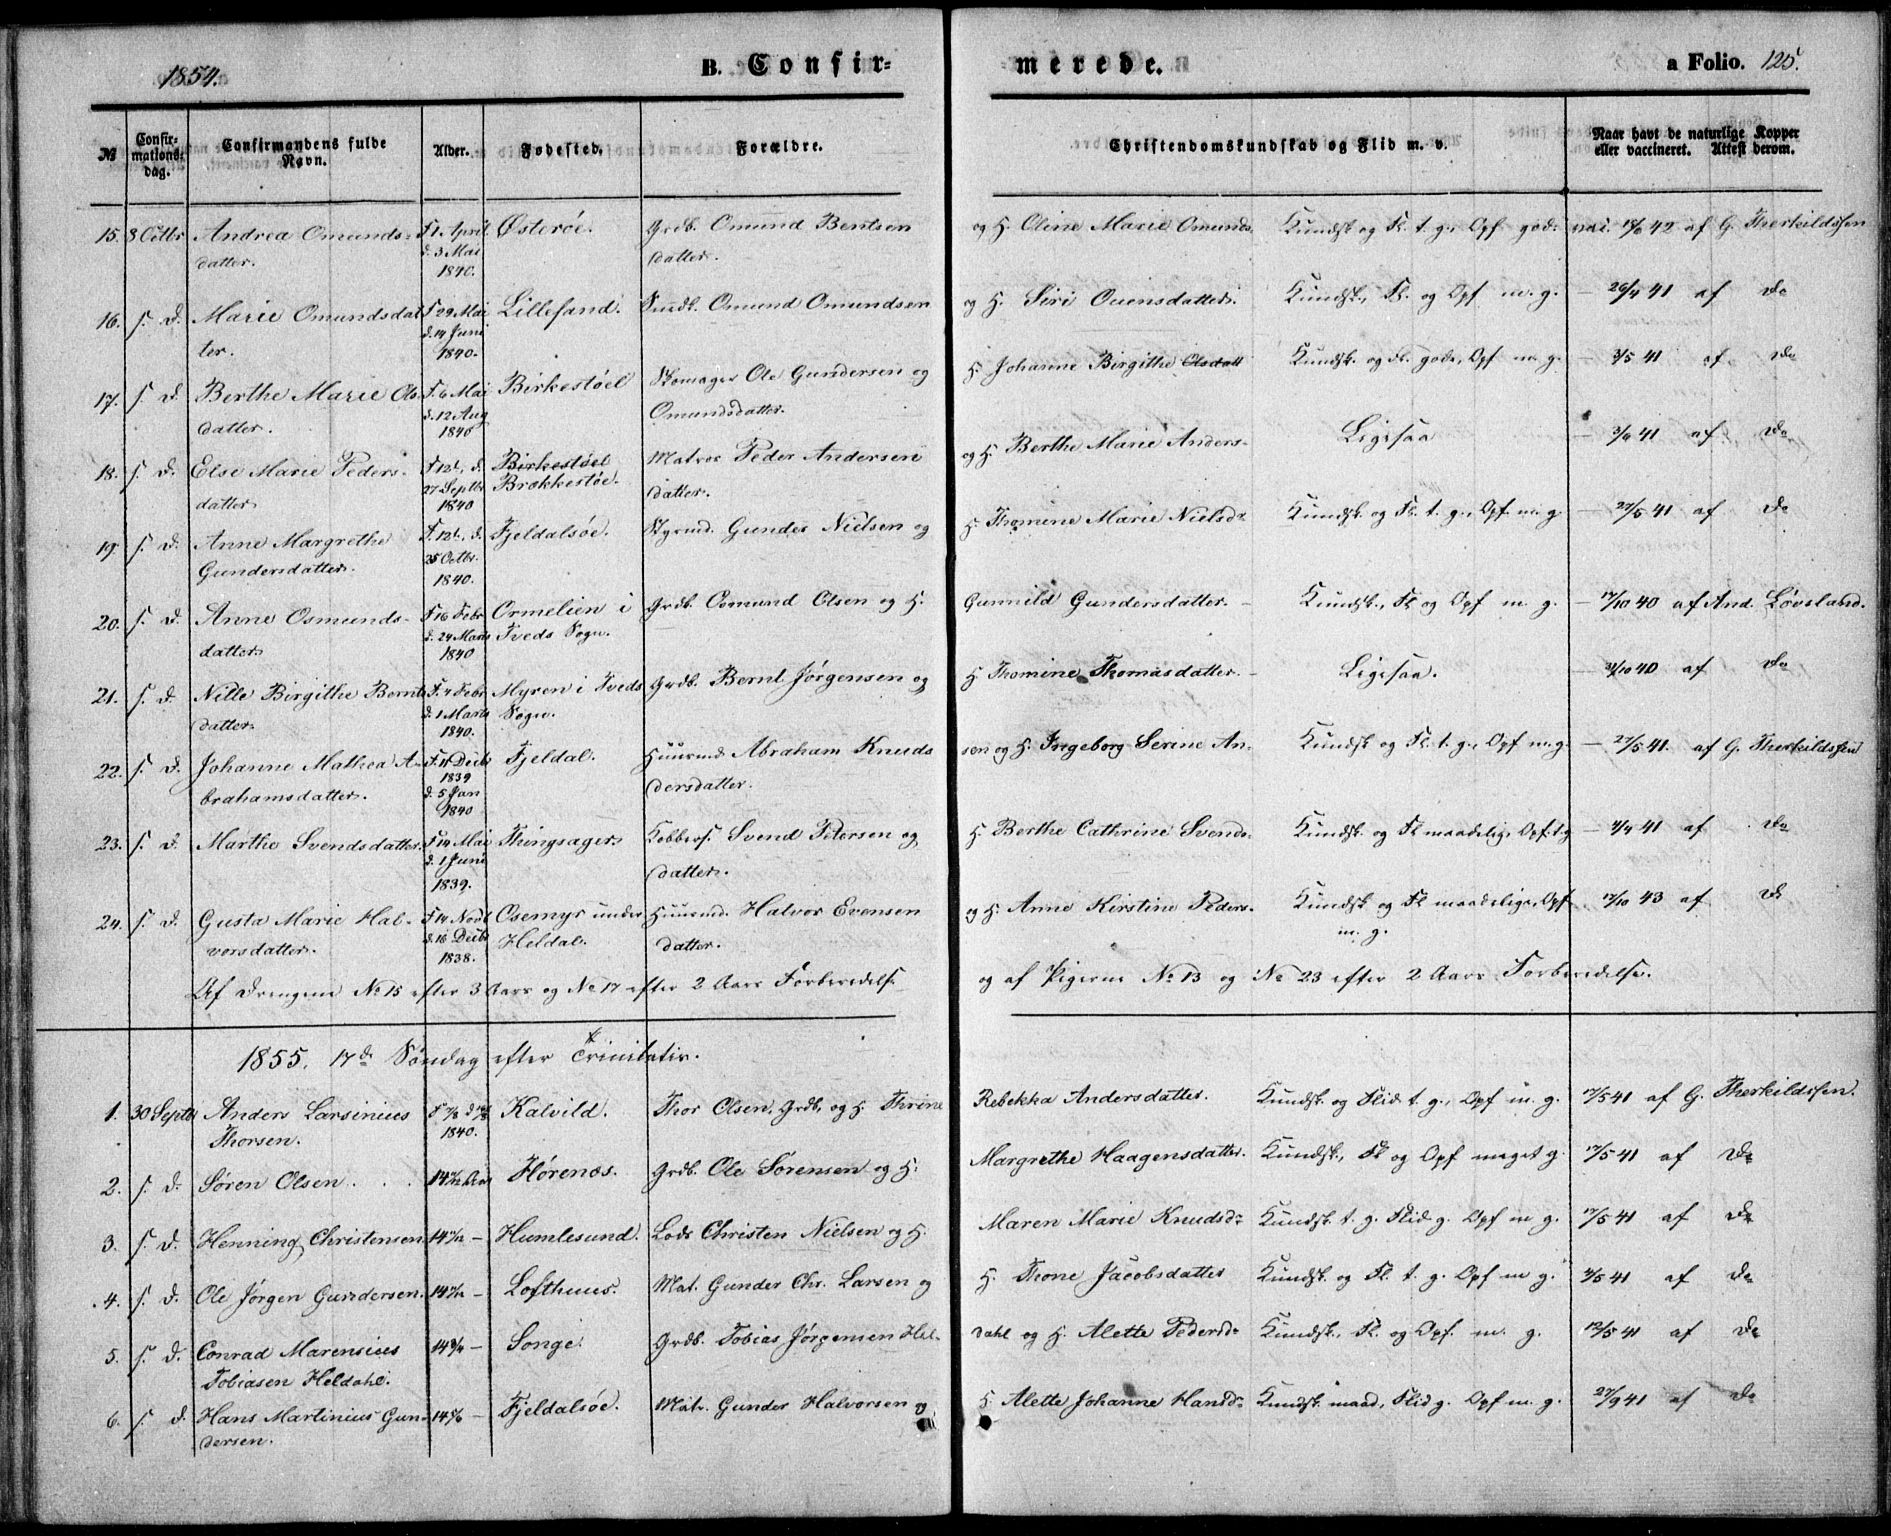 1854.
B. Confir=
merede.
a Folio. 125.
№
Confir=
mations=
dag.
Confirmandens fulde
Navn.
Alder.
Fødested.
Forældre.
Christendomskundskab og Flid m. v.
Naar havt de naturlige Kopper
eller vaccineret. Attest derom.
15. 8 Octbr Andrea Omunds- F. 1 April Østerøe. Grdb. Omund Bentsen og H. Oline Marie Omunds Kundsk og Fl. t. g., Opf god. 42 af G. Therkildssen
datter. d. 3 Mai datter.
1840.
16. s. d. Marie Omundsdat F 29 Mai Lillesand. Omund Omundsen og H. Siri Ouensdatter. Kundsk., Fl. og Opf m. g. — 26/4 41 af do
ter. d. 14 Juni
1840.
17. s. d. Berthe Marie Ols F. 6 Mai Birkestøel Skomager Ole Gundersen og H. Johanne Birgithe Olsdatt Kundsk. og Fl. gode, Opf m. g. — 3/5 41 af do
datter. d. 12 Aug Omundsdatter.
1840
18. s. d. Else Marie Peders- F 12t, d. Birkestøel Matros Peder Andersen og H. Berthe Marie Anders- Ligesaa — 3/4 41 af do
datter 27 Septbr Brækkestøe. datter.
1840
19. s. d. Anne Margrethe F. 12t, d. Fjeldalsøe. Styrmd. Gunder Nielsen og H. Thomine Marie Nielsdr Kundsk. og Fl. t. g., Opf. m. g. — 27/5 41 af do
Gundersdatter. 25 Octbr.
1840.
20. s. d. Anne Osmunds- F 16 Febr Ormelien i Grdb. Osmund Olsen og H. Gunnild Gundersdatter. — Kundsk., Fl og Opf m. g. — 17/10 40 af And. Løvsland.
datter d. 24 Marts Tveds Sogn.
1840
21. s. d. Nille Birgithe Bernts F. 4 Febr Myren i Tveds Grdb. Bernt Jørgensen og H. Thomine Thomasdatter. — Ligesaa. — 21/10 40 af do
datter d. 1 Marts Sogn.
1840.
22. s. d. Johanne Mathea A- F. 11 Decbr Fjeldal. Huusmd Abraham Knuds sen og H. Ingeborg Serine An- Kundsk og Fl. t. g., Opf m. g. — 27/5 41. af G. Therkildssen
brahamsdatter. 1839 dersdatter.
d. 5 Jan
1840
23. s. d. Marthe Svendsdatter. F 14 Mai Thingsager. Kobbers. Svend Petersen og H. Berthe Cathrine Svends- Kundsk. og Fl maadelig, Opf. t. g — 4/4 41 af do
d. 1 Juni datter.
1839.
24. s. d. Gusta Marie Hal- F 14 Novbr Osemyr under Huusmd. Halvor Evensen og H. Anne Kirstine Peders- Kundsk og Fl maadelige, Opf 17/10 43 af do
vorsdatter. d. 16 Decbr Heldal. datter. m. g.
1838.
Af Drengene No 15 efter 3 Aars og No 17 efter 2 Aars Forberedelse og af Pigerne No 13 og No 23 efter 2 Aars Forberedelse.
1855. 17de Søndag efter Trinitatis.
1. 30 Septbr Anders Larsinius Kalvild. Thor Olsen, Grdb, og H. Thrine Rebekka Andersdatter. Kundsk. og Flid t. g., Opf m. g. 17/5 41 af G. Therkildssen.
Thorsen. 1840.
2. s. d. Søren Olsen . . . Hørenæs. Grdb. Ole Sørensen og H. Margrethe Haagensdatter. Kundsk., Fl og Opf meget g. 17/5 41 af do
3. s. d. Henning Christensen Humlesund. Lods Christen Nielsen og H. Maren Marie Knudsdr Kundsk. t. g. Flid g. Opf m g. 17/5 41 af do
4. s. d. Ole Jørgen Gundersen. Lofthuus. Mat. Gunder Chr. Larsen og H. Thone Jacobsdatter Kundsk. og Fl. t. g. Opf m g. 4/5 41 af do
5. s. d. Conrad Marensius Songe. Grdb. Tobias Jørgensen Hel- dahl og H. Alette Pedersdr Kundsk., Fl. og Opf. m. g. 12/5 41 af do
Tobiasen Heldahl.
6. s. d. Hans Martinius Gun- Fjeldalsøe. Matr. Gunder Halvorsen og H. Alette Johanne Hansdr Kundsk. maad, Flid g. Opf m. g. 27/9 41 af do
dersen.